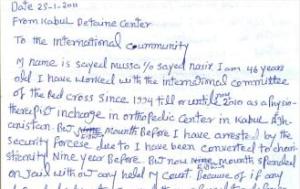 Date 25-1-2011
From Kabul Detaine Center
To the international community
My name is sayed mussa s/o sayed nasir I am 46 years
old I have worked with the international committee
of the Red cross Since 1994 till or until now 2010 as a physio-
therepist incharge in orthopedic Center in Kabul Afgh
anistan. But mounth Before I have arrested by the
security force due to I have been converted to
Nine year Before. But now mounth spended
on Jail with out any held my Court because of if any